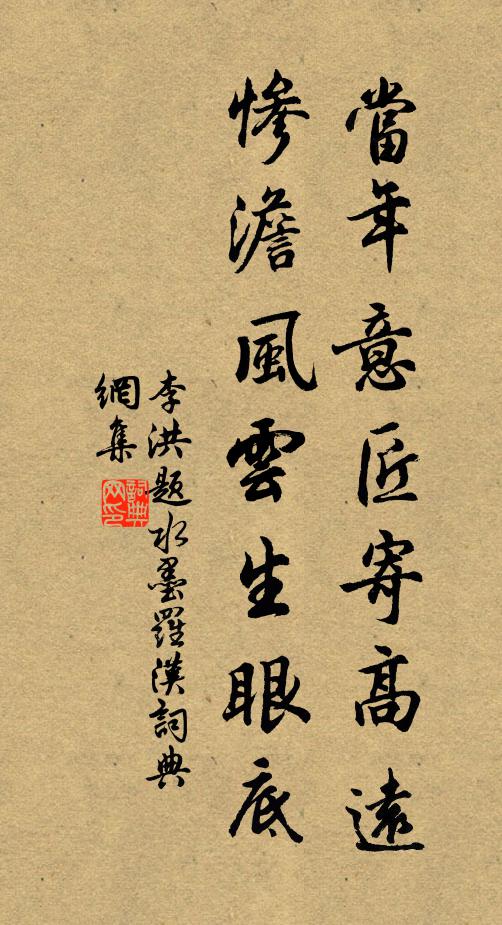 當年意匠寄高遠
慘澹風雲生眼底
李洪題水墨羅漢詞典
網集
詞典網印